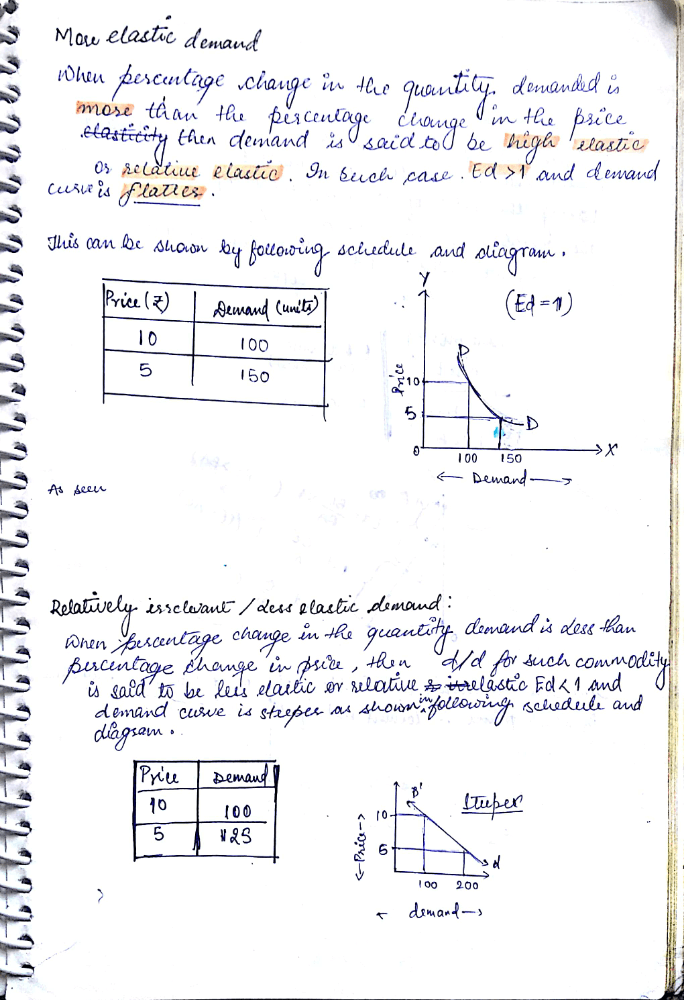 More elastic demand
When percentage change in the quantity demanded is
more than the percentage change in the price
elasticity then demand is said to be high elastic
or relative elastic. In such case. Ed >1 and demand
curve is flatter.
This can be shown by following schedule and diagram.
Price (₹) Demand (units)
10 100
5 150
Y
(Ed = 1)
D
Price
10
5
D
0
100 150
X
← Demand →
As seen
Relatively irrelevant / Less elastic demand:
When percentage change in the quantity demand is less than
percentage change in price, then d/d for such commodity
is said to be less elastic or relative elastic Ed<1 and
demand curve is steeper as shown in following schedule and
diagram.
Price Demand
10 100
5 125
Steeper
10
← Price →
5
d
100 200
← demand →